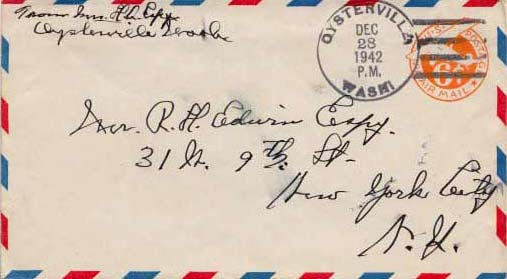 From Mrs. H.A. Espy
Oysterville Wash.
OYSTERVILLE
DEC
28
1942
P.M.
WASH.
U.S. POSTAGE
6¢
AIR MAIL
Mr. R. H. Edwin Espy.
31 W. 9th. St.
New York City
N. Y.